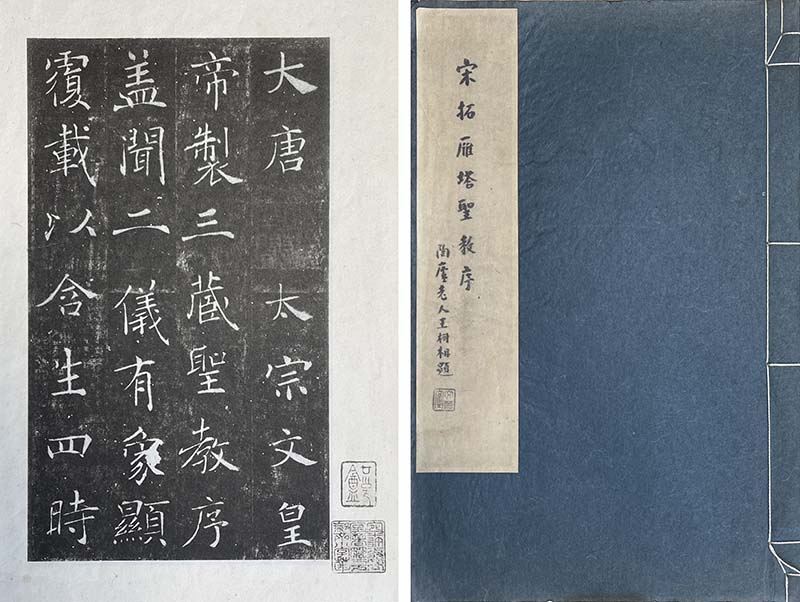 大唐太宗文皇
帝製三藏聖教序
盖聞二儀有象顯
覆載以含生四時
宋拓雁塔聖教序
陶廬老人王樹枏題